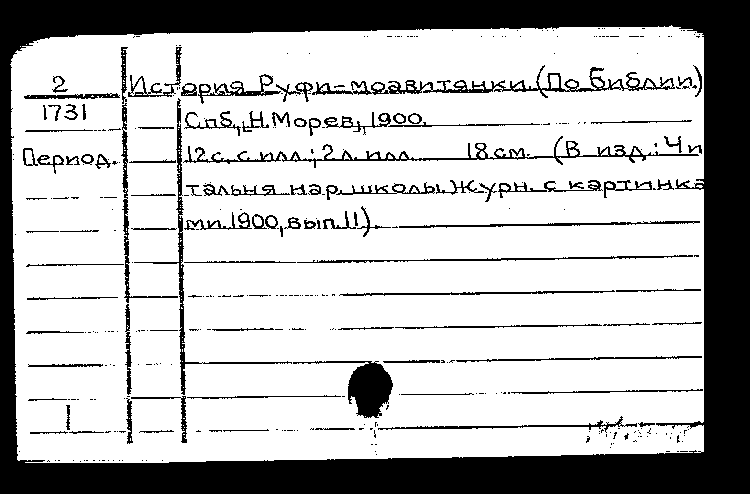 2 История Руфи-моавитянки. (По Библии.)
1731 Спб, "Н. Морев", 1900.
Период. 12 с. с илл.; 2 л. илл. 18 см. (В изд.: Чи
тальня нар. школы. Журн. с картинка
ми. 1900, вып. 11).
1